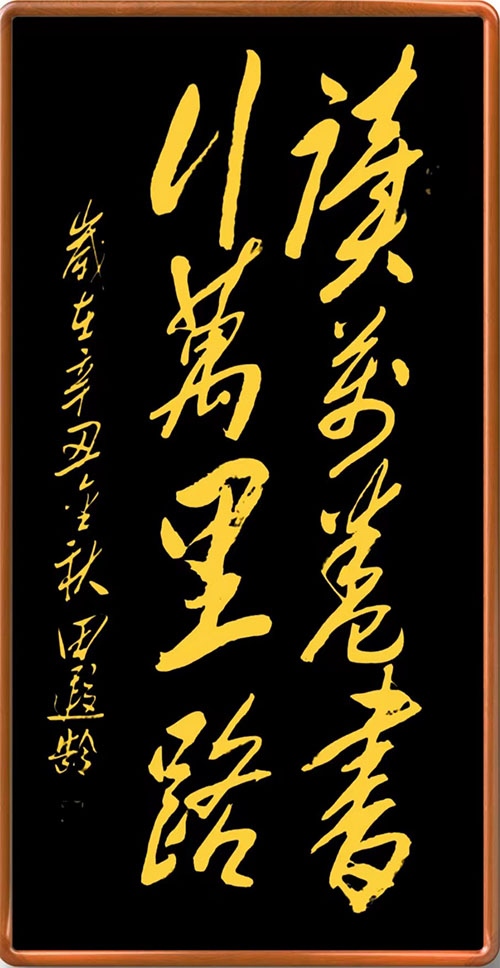 读萬卷書
行萬里路
歲在辛丑金秋 田遐龄